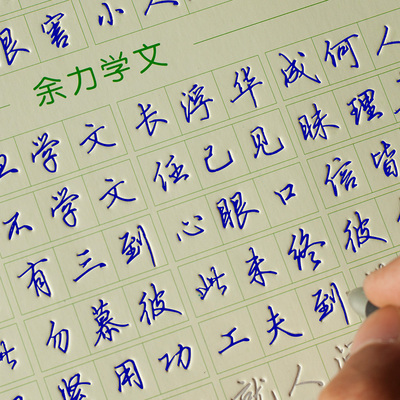 害小人
余力学文
学文 长浮华 成何人
不学文 任己见 昧理
有三到 心眼口 信皆
此 勿慕彼 此未终 彼
紧用功 工夫到
就人